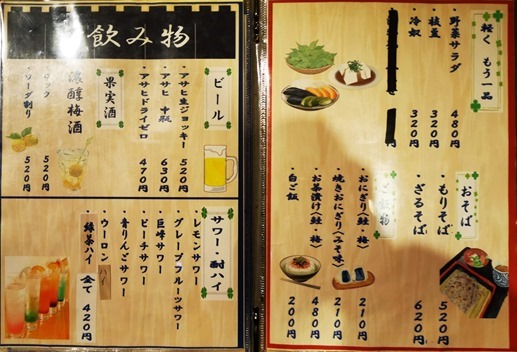 お飲み物
ビール
・アサヒ生ジョッキー 520円
・アサヒ 中瓶 630円
・アサヒドライゼロ 470円
果実酒
濃醇梅酒
・ロック 520円
・ソーダ割り 520円
サワー・酎ハイ
・レモンサワー
・グレープフルーツサワー
・巨峰サワー
・ピーチサワー
・青りんごサワー
・ウーロンハイ
・緑茶ハイ 全て 420円
軽くもう一品
・野菜サラダ 480円
・枝豆 320円
・冷奴 320円
円
おそば
・もりそば 520円
・ざるそば 620円
ご飯物
・おにぎり(鮭・梅) 210円
・焼きおにぎり(みそ味) 210円
・お茶漬け(鮭・梅) 480円
・白ご飯 200円